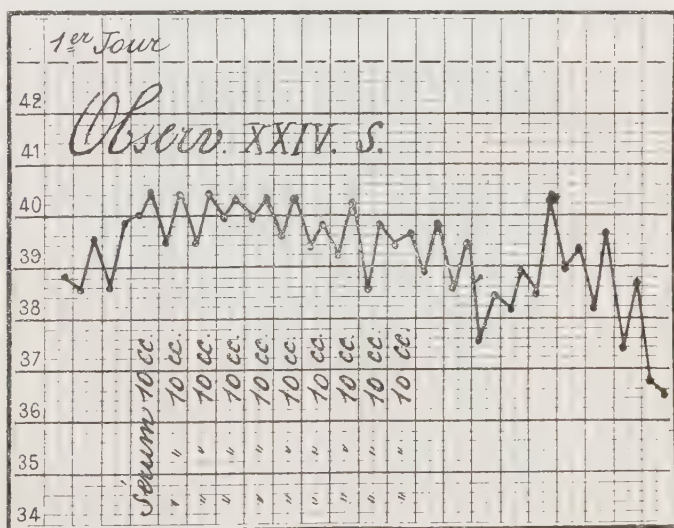 1er Jour
42
Observ. XXIV. S.
41
40
39
38
37
36
35
34
Sérum 10 cc.
" " 10 cc.
" " 10 cc.
" " 10 cc.
" " 10 cc.
" " 10 cc.
" " 10 cc.
" " 10 cc.
" " 10 cc.
" " 10 cc.